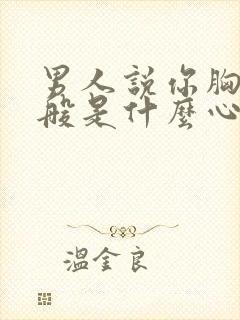 男人說你胸
般是什麼心
溫金良